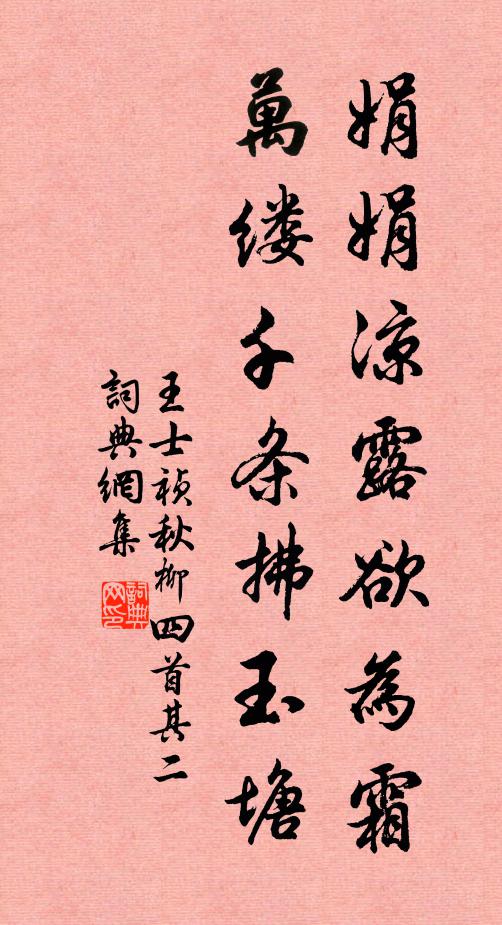 娟娟凉露欲為霜
萬缕千条拂玉塘
王士禎秋柳四首其二
詞典網集
詞典网印